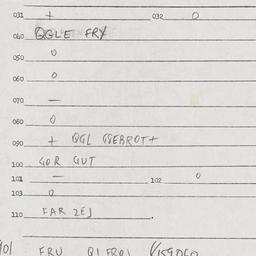 031 + 032 0
040 QGLE FRY
050 0
060 0
070 —
080 0
090 + QGL GSEBROT+
100 GOR GUT
101 — 102 0
103 0
110 FAR ZEJ
901 FRU